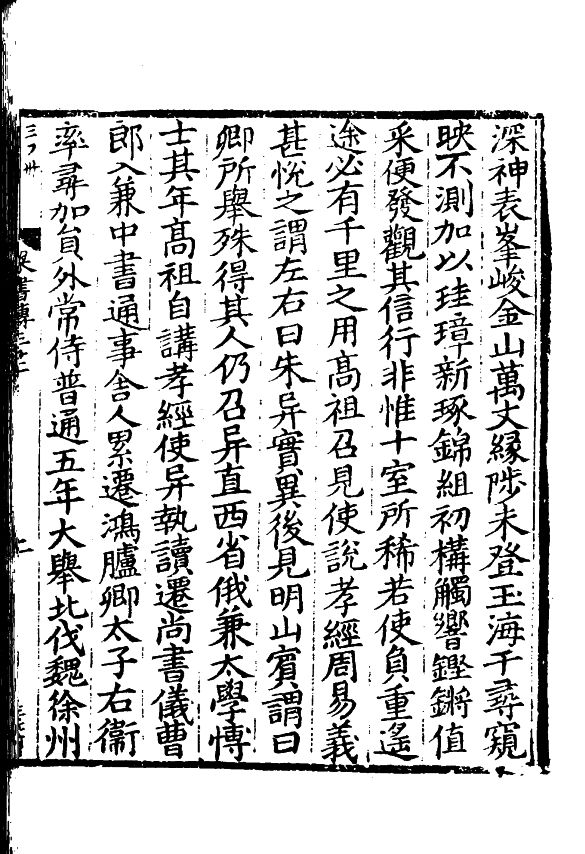 深神表峯峻金山萬丈緣陟未登玉海千尋窺
映不測加以珪璋新琢錦組初構觸響鏗鏘值
采便發觀其信行非惟十室所稀若使負重遙
途必有千里之用髙祖召見使說孝經周易義
甚悅之謂左右曰朱异實異後見明山賓謂曰
卿所舉殊得其人仍召异直西省俄兼太學博
士其年髙祖自講孝經使异執讀遷尚書儀曹
郎入兼中書通事舍人累遷鴻臚卿太子右衛
率尋加員外常侍普通五年大舉北伐魏徐州